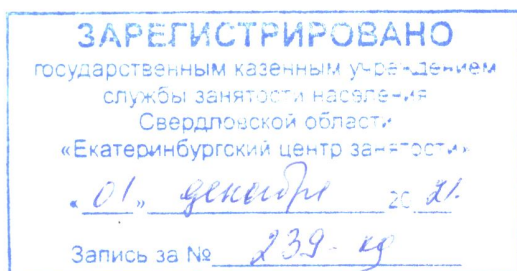 ЗАРЕГИСТРИРОВАНО
государственным казенным учреждением
службы занятости населения
Свердловской области
«Екатеринбургский центр занятости»
«01» декабря 2021.
Запись за № 239-кд